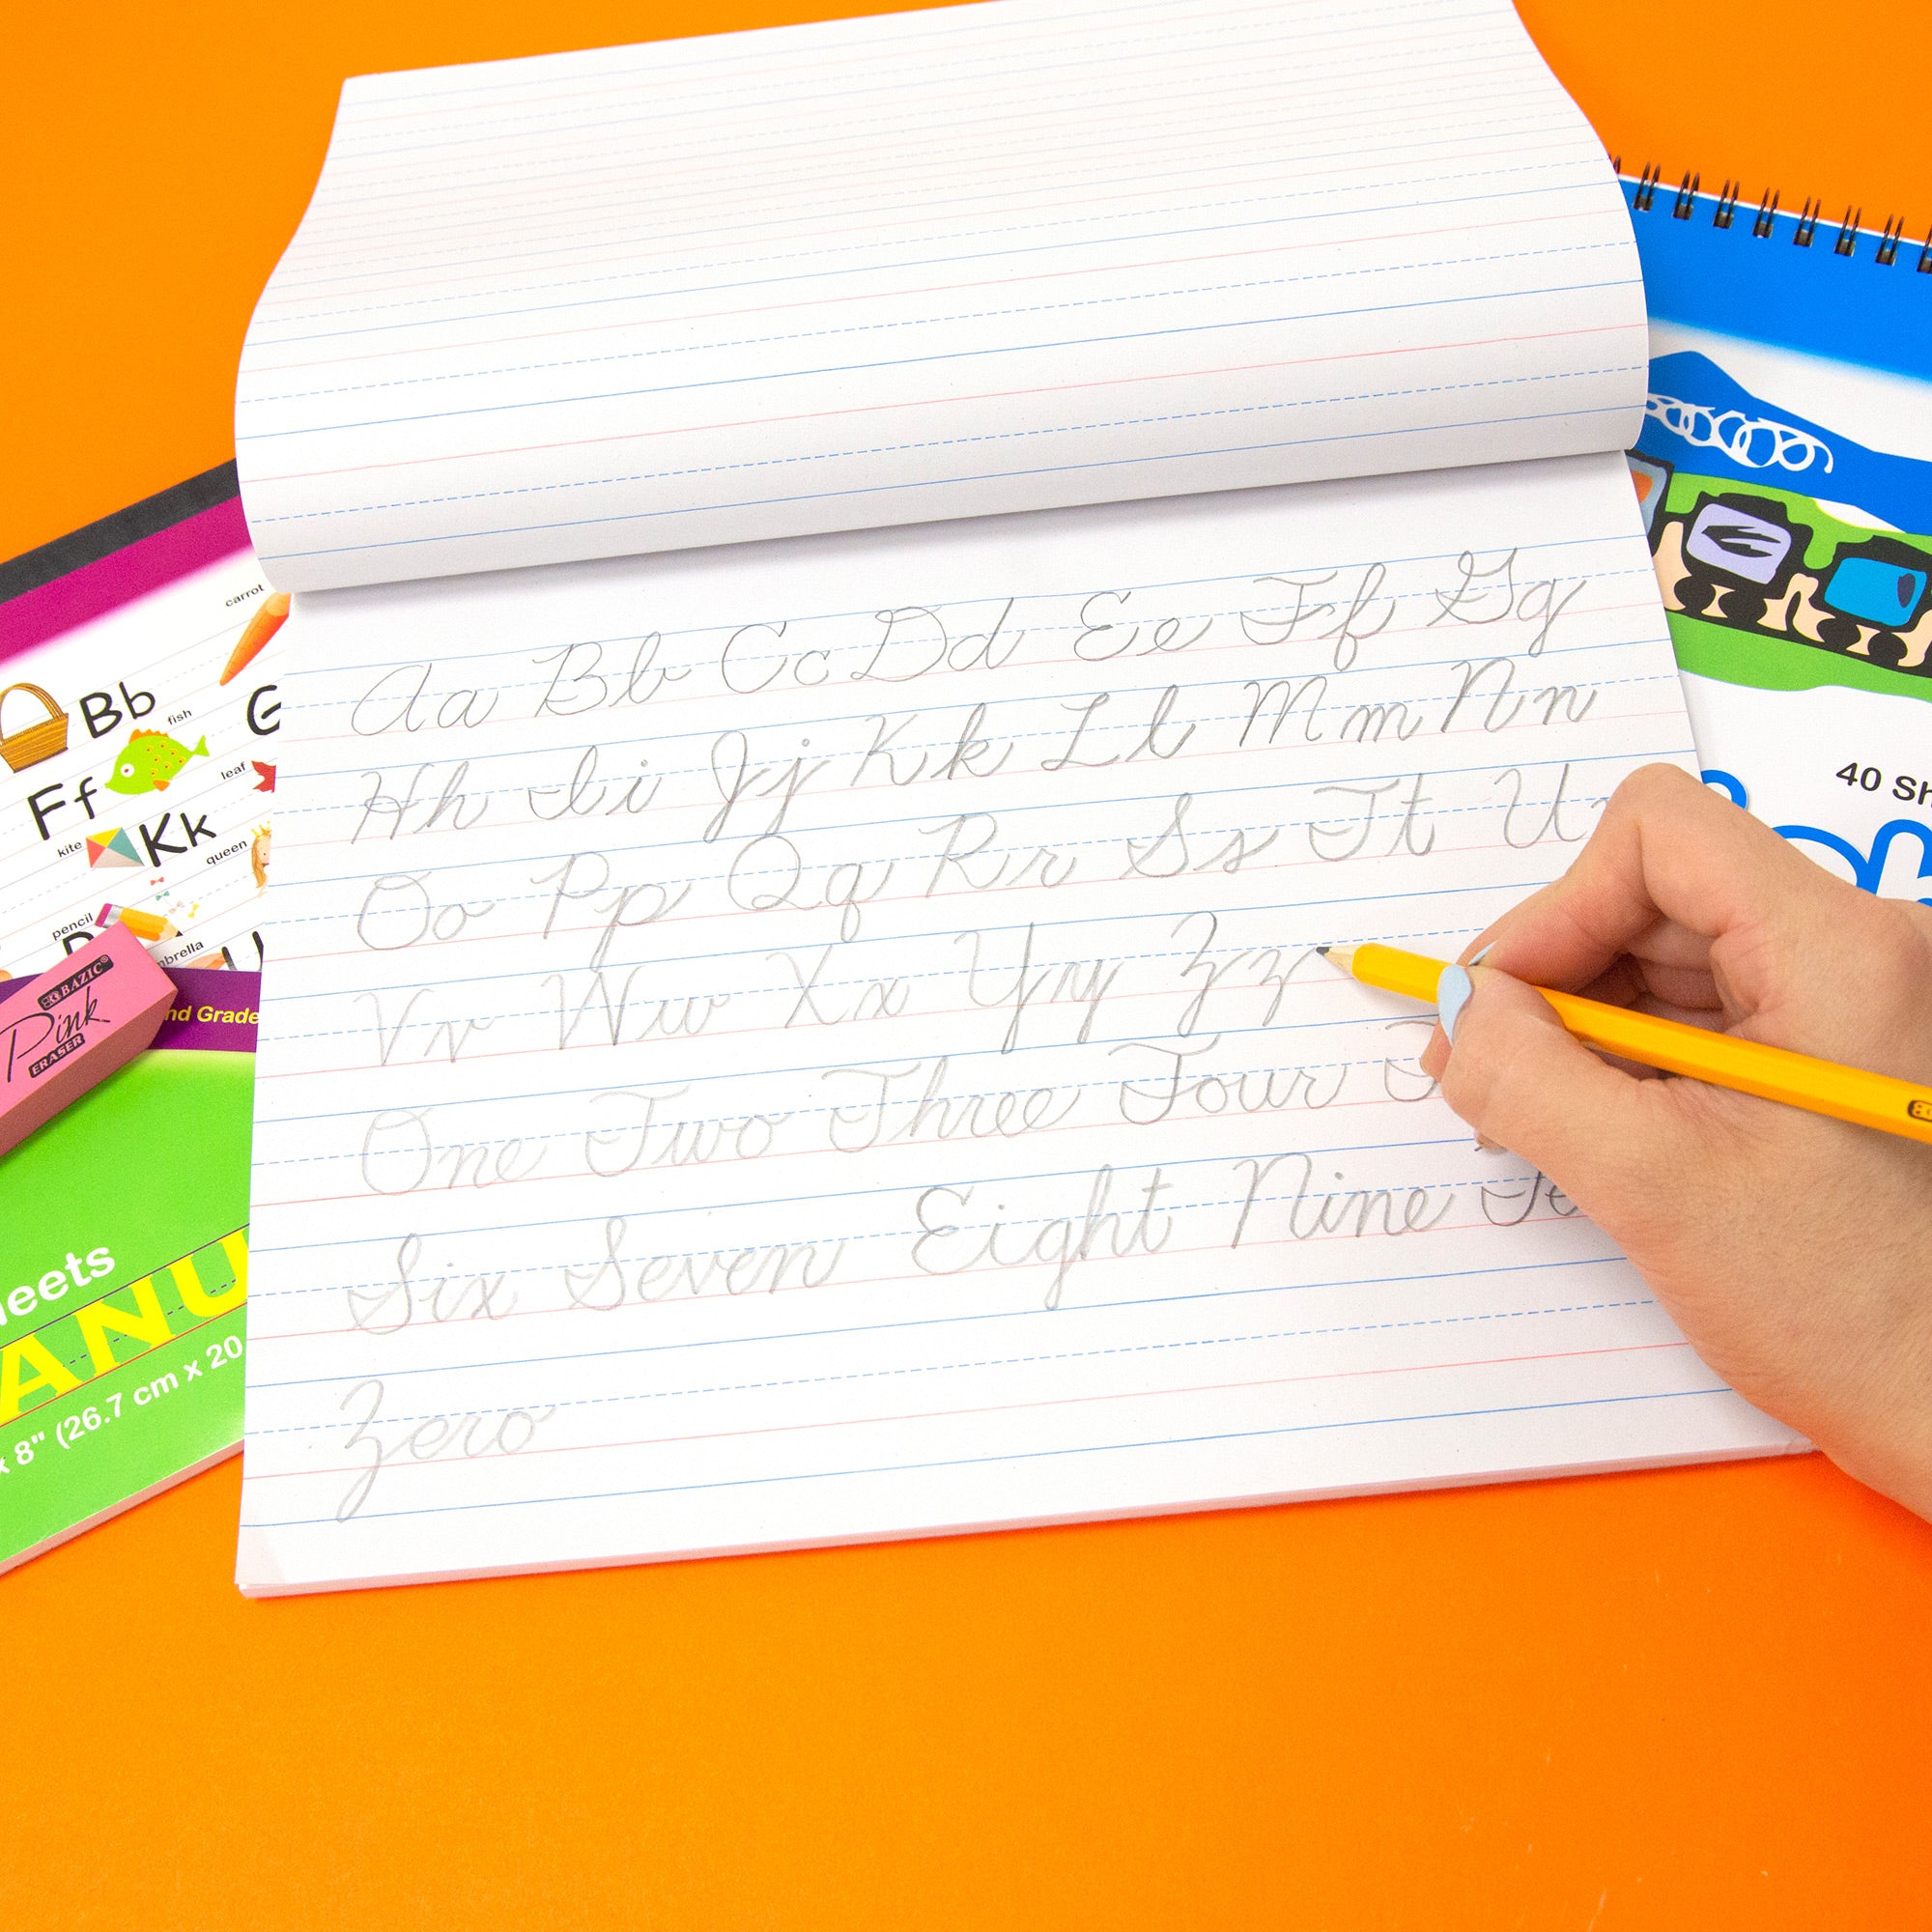 Aa Bb Cc Dd Ee Ff Gg
Hh Ii Jj Kk Ll Mm Nn
Oo Pp Qq Rr Ss Tt U
Vv Ww Xx Yy Zz
One Two Three Four
Six Seven Eight Nine
Zero
carrot
Bb
fish
G
Ff
leaf
kite
Kk
queen
pencil
U
BAZIC
Pink
ERASER
nd Grade
eets
ANU
x 8" (26.7 cm x 20
40 Sh